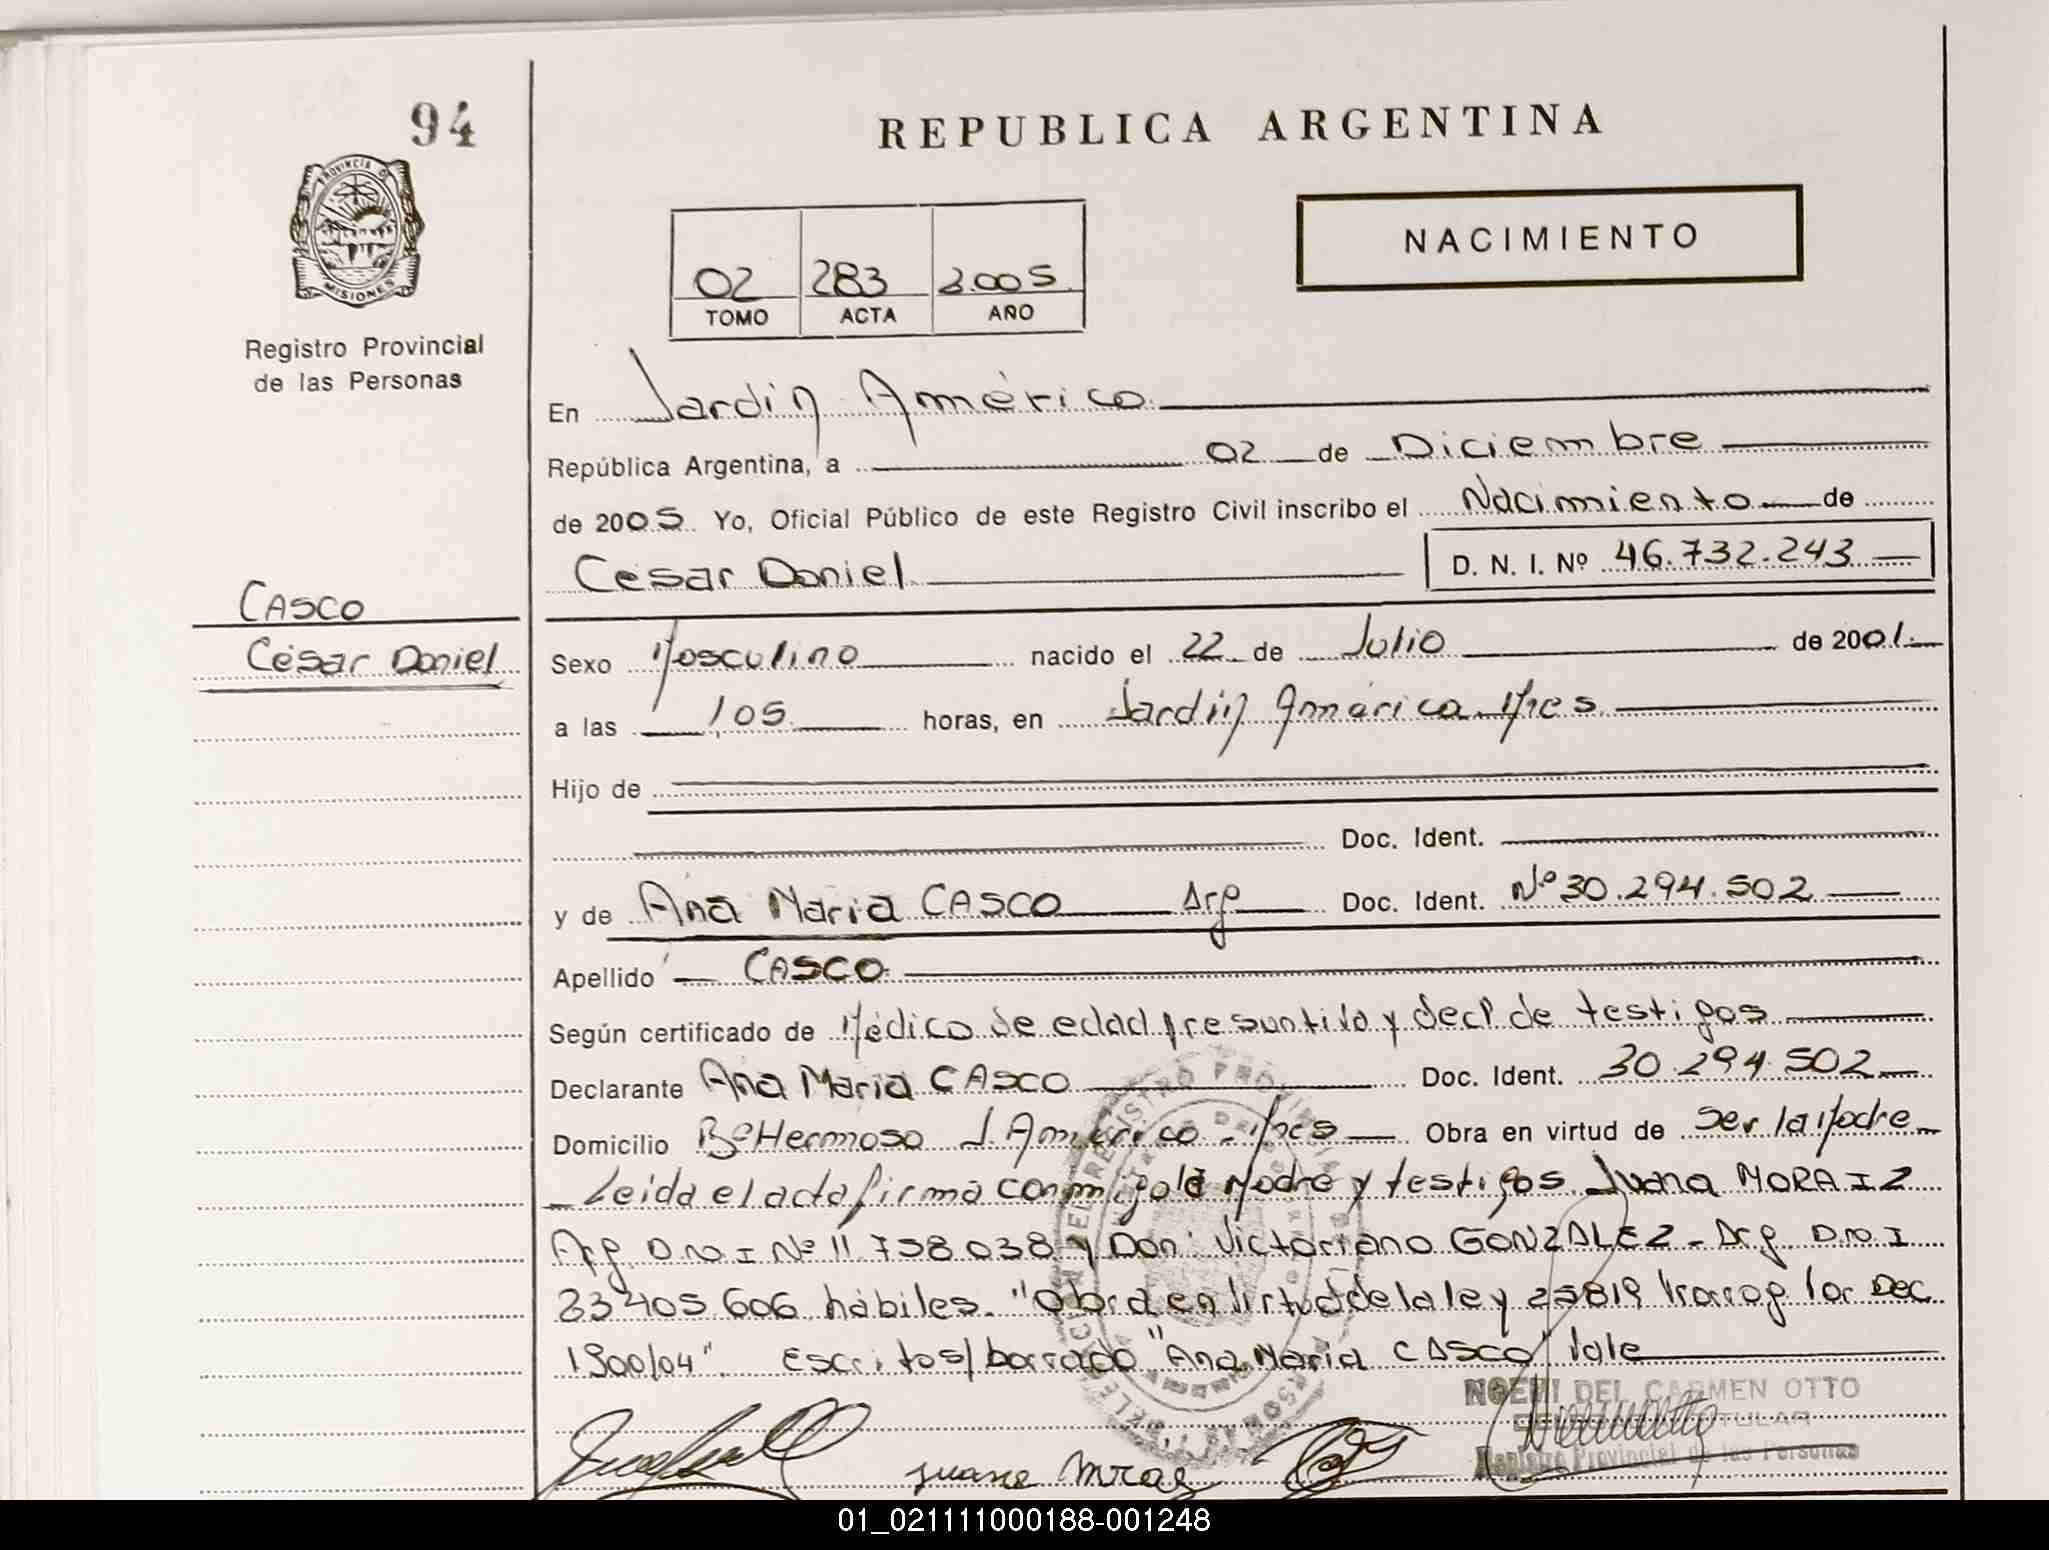 94
PROVINCIA DE
MISIONES
Registro Provincial
de las Personas
CASCO
César Daniel
REPUBLICA ARGENTINA
NACIMIENTO
02 283 2005
TOMO ACTA AÑO
En Jardín América
República Argentina, a 02 de Diciembre
de 2005 Yo, Oficial Público de este Registro Civil inscribo el Nacimiento de
César Daniel D. N. I. Nº 46.732.243
Sexo Masculino nacido el 22 de Julio de 2001
a las 1,05 horas, en Jardín América Mnes
Hijo de
Doc. Ident.
y de Ana Maria CASCO Arg Doc. Ident. Nº 30.294.502
Apellido CASCO
Según certificado de Médico de edad presuntiva y decl de testigos
Declarante Ana Maria CASCO Doc. Ident. 30.294.502
Domicilio Bº Hermoso J. América - Mnes Obra en virtud de Ser la Madre
Leida el acta firma conmigo la Madre y testigos Juana MORAIZ
Arg D.N.I Nº 11.758.038 y Don Victoriano GONZALEZ - Arg D.N.I
33405606 hábiles. "Obra en virtud de la ley 25819 Prorrog Por Dec
1900/04". Escritos/borrado "Ana Maria CASCO" Vale
NOEMI DEL CARMEN OTTO
TITULAR
Registro Provincial de las Personas
01_021111000188-001248